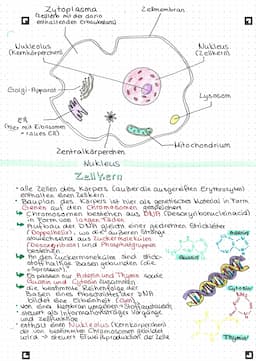 Zytoplasma
Zellmembran
Nukleolus
(Kernkörperchen)
Nukleus
(Zellkern)
Golgi-Apparat
Lysosom
ER
Mitochondrium
Zentralkörperchen
Nukleus
Zellkern
• alle Zellen des Körpers (außer die ausgereiften Erythrozyten)
enthalten einen Zellkern
• Bauplan des Körpers ist hier als genetisches Material in Form
Genen auf den Chromosomen gespeichert
• Chromosomen bestehen aus DNA (Desoxyribonucleinacid)
in Form von langen Fäden
Aufbau der DNA gleicht einer gedrehten Strickleiter
(Doppelhelix), wo die äußeren Stränge
abwechselnd aus Zuckermolekülen
(Desoxyribose) und Phosphatgruppen
bestehen
An den Zuckermolekülen sind stick-
stoffhaltige Basen gebunden (die
"Sprossen")
Es paaren sich Adenin und Thymin sowie
Guanin und Cytosin zusammen
die bestimmte Reihenfolge der
Basen eines Abschnittes der DNA
bildet eine Einheit (Gen)
• von einer Kernmembran umgeben → Stoffaustausch
• steuert als Informationsträger Vorgänge
und Zellfunktion
• enthält einen Nukleolus (Kernkörperchen)
der von bestimmten Chromosomen gebildet
wird → steuert Eiweißproduktion der Zelle
Adenin
Guanin
Cytosin
Thymin